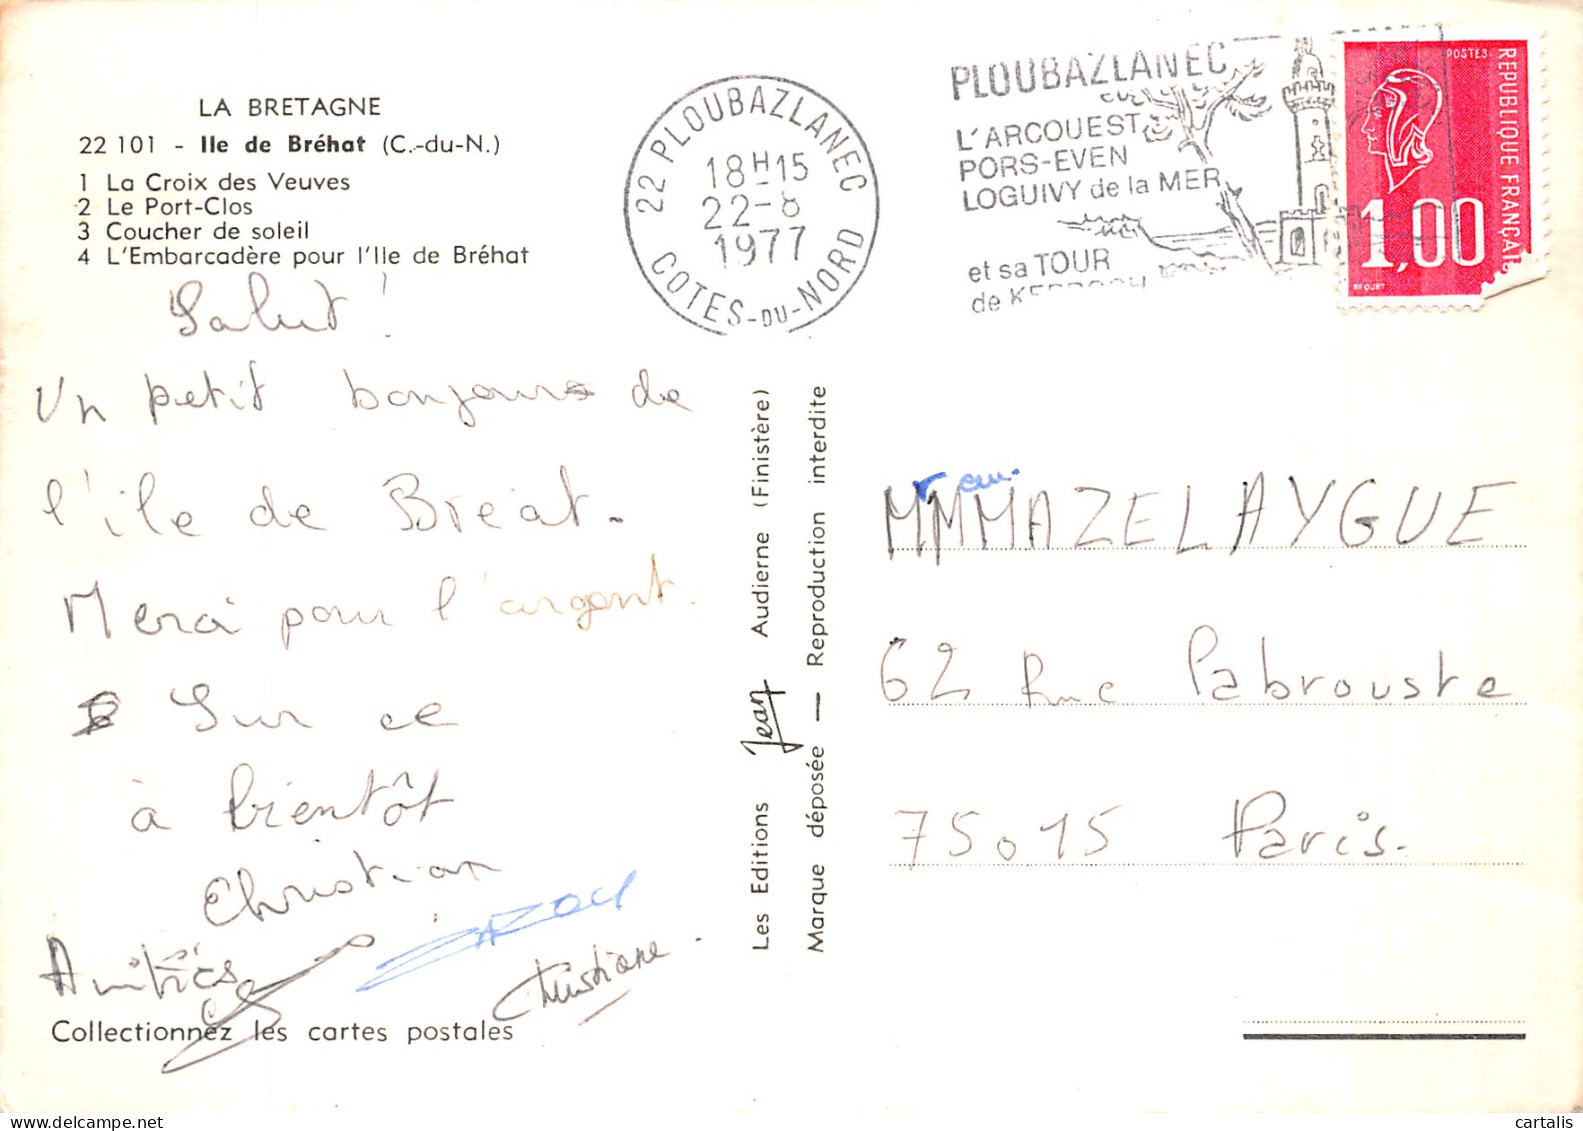 LA BRETAGNE
22 101 - Ile de Bréhat (C.-du-N.)
1 La Croix des Veuves
2 Le Port-Clos
3 Coucher de soleil
4 L'Embarcadère pour l'Ile de Bréhat
Salut !
Un petit bonjour de
l'ile de Breat.
Merci pour l'argent.
Sur ce
à bientôt
Christian
Amitiés
Christiane
Collectionnez les cartes postales
Les Editions Jean Audierne (Finistère)
Marque déposée — Reproduction interdite
22 PLOUBAZLANEC
18H15
22-8
1977
COTES-DU-NORD
PLOUBAZLANEC
L'ARCOUEST
PORS-EVEN
LOGUIVY de la MER
et sa TOUR
de
POSTES
REPUBLIQUE FRANÇAISE
1,00
BEQUET
MAZELAYGUE
62 Rue Labrouste
75015 Paris.
cartalis